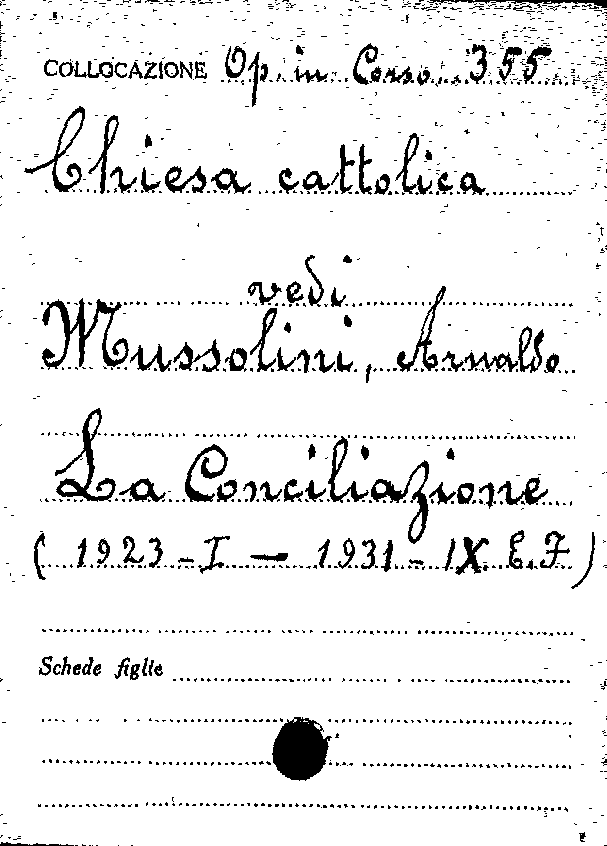 COLLOCAZIONE Op. in Corso. 355
Chiesa cattolica
vedi
Mussolini, Arnaldo
La Conciliazione
( 1923 - I — 1931 - IX. E. F )
Schede figlie